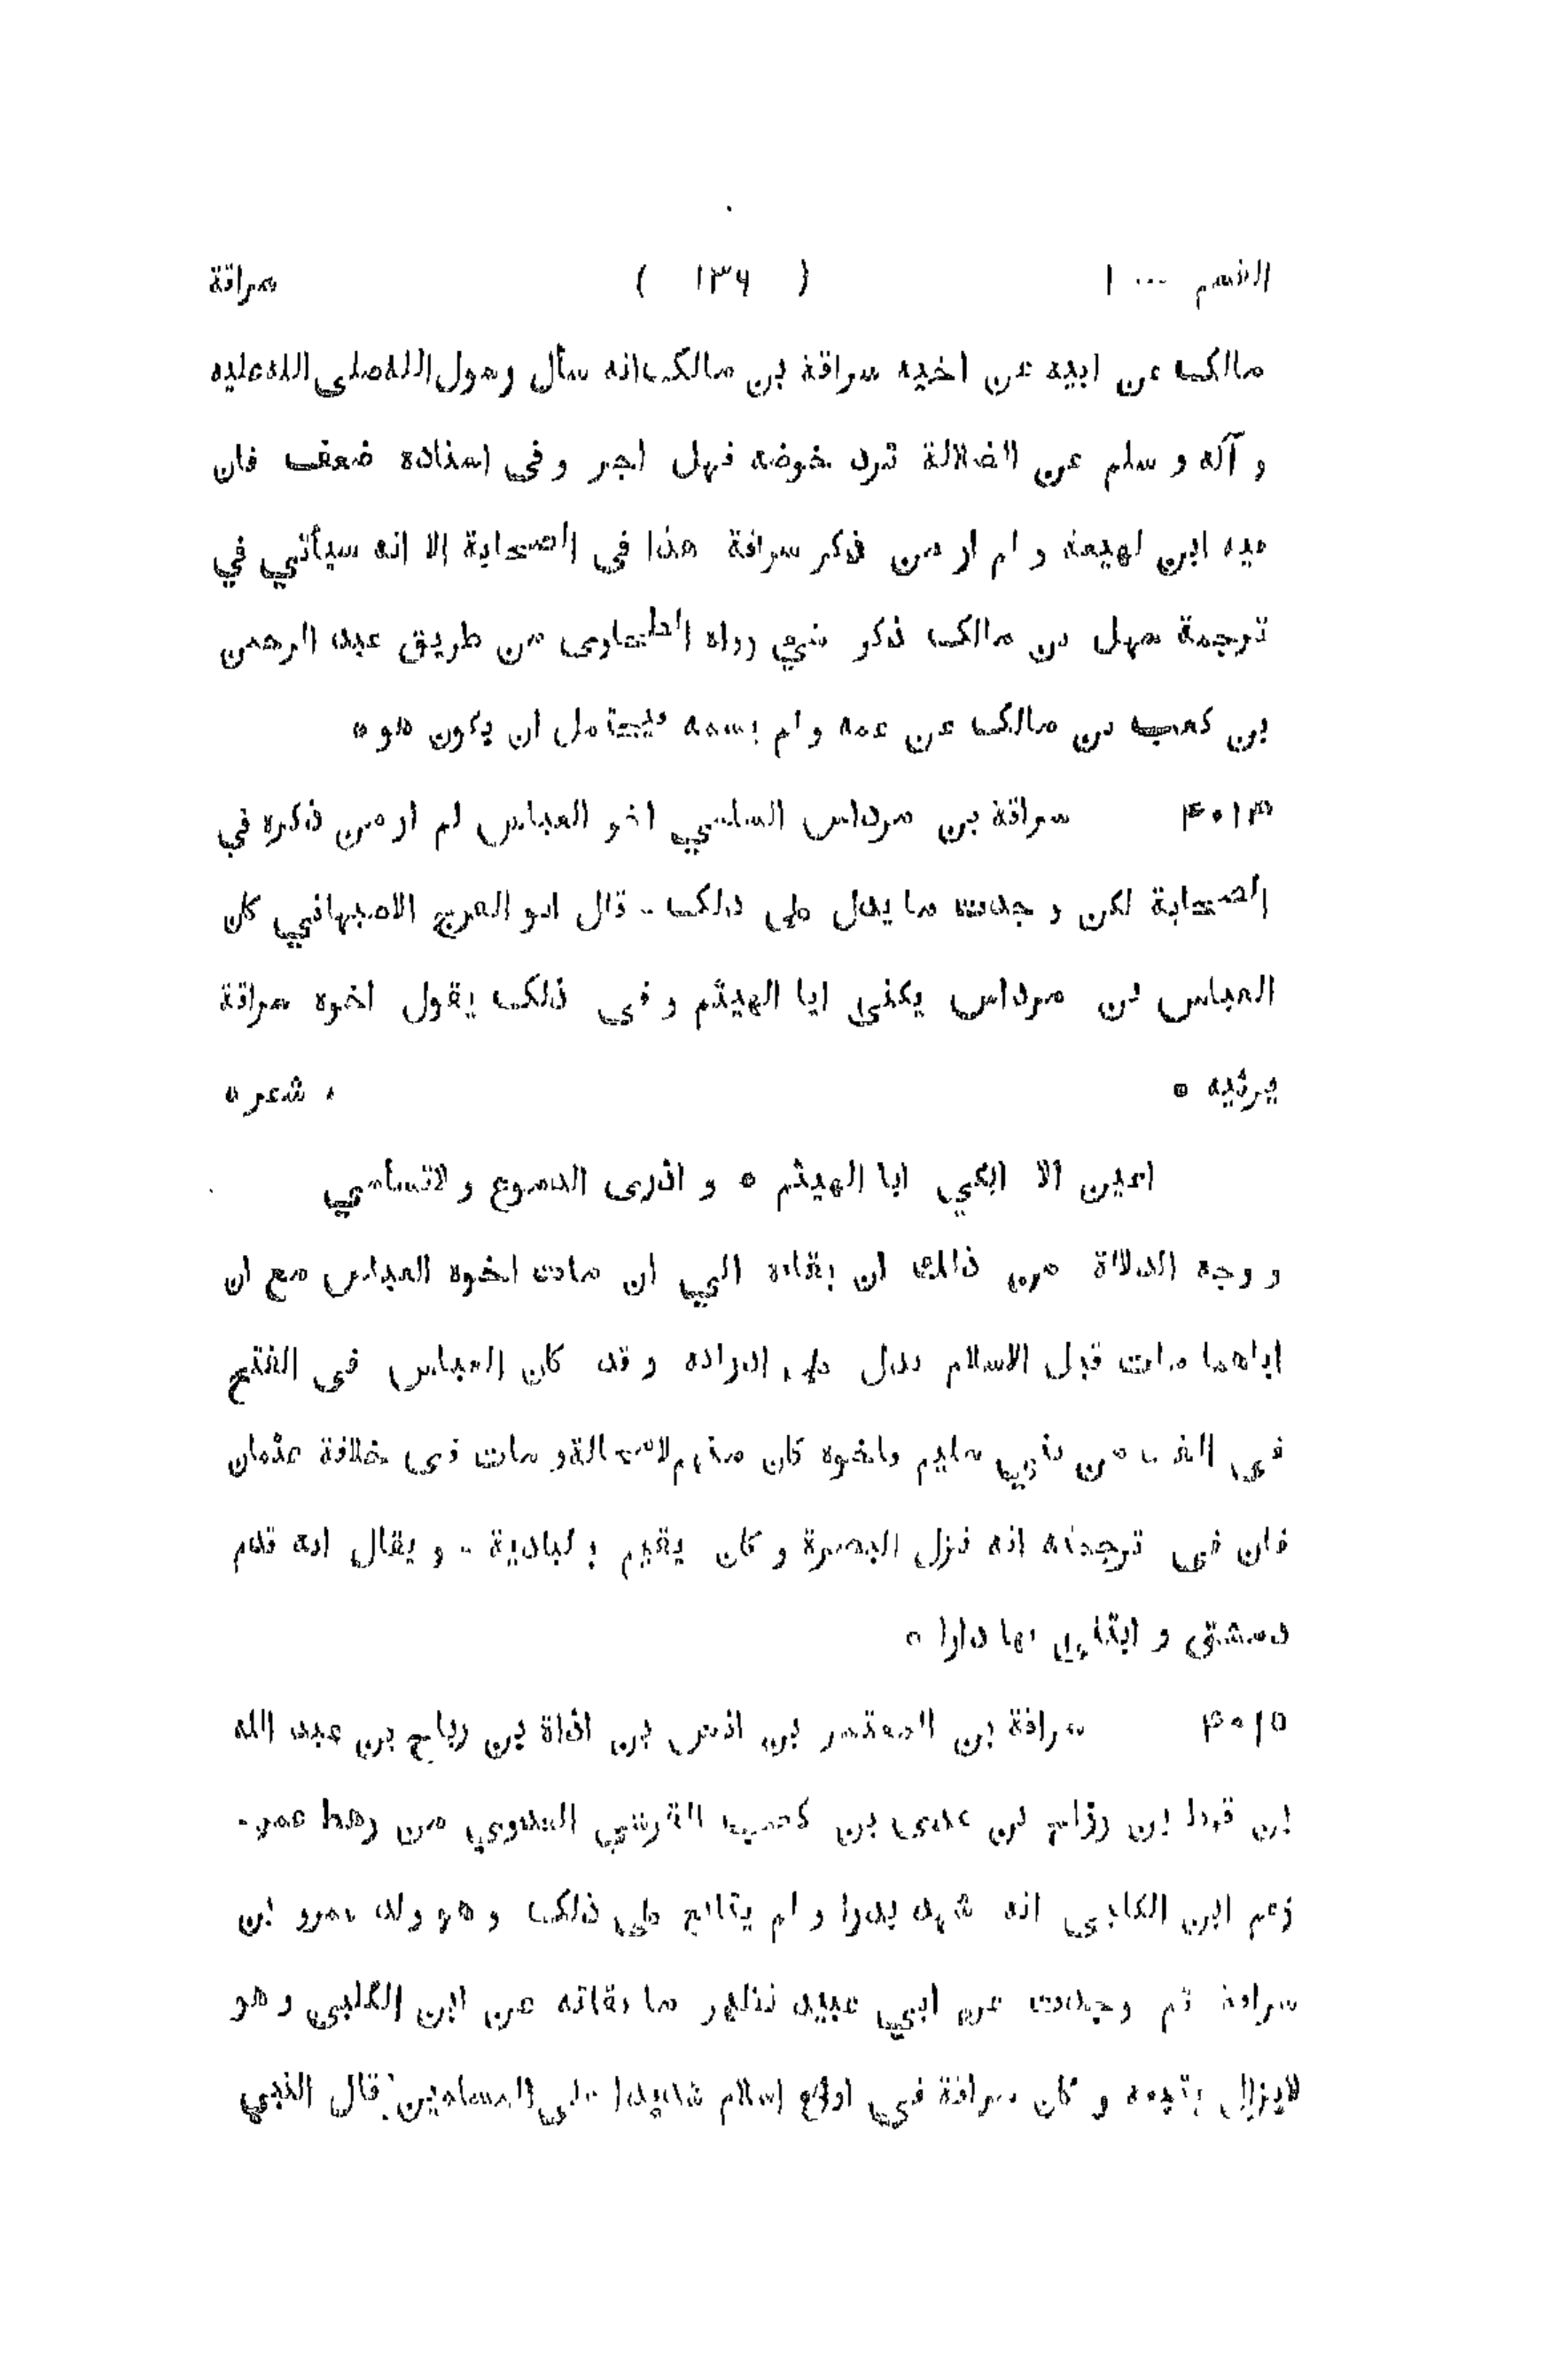 القسم ... ١ ( ١٣٦ ) سراقة
مالك عن ابيه عن اخيه سراقة بن مالك انه سأل رسول الله صلى الله عليه
و آله و سلم عن الضلالة ترد خوضه فهل اجر و في اسناده ضعف فان
فيه ابن لهيعة و لم ار من ذكر سراقة هذا في الصحابة الا انه سيأتي في
ترجمة سهل بن مالك ذكر شي رواه الطحاوى من طريق عبد الرحمن
بن كعب بن مالك عن عمه و لم يسمه فيحتمل ان يكون هو ه
سراقة بن مرداس السلمي اخو العباس لم ار من ذكره في
الصحابة لكن و جدت ما يدل على ذلك - قال ابو الفرج الاصبهاني كان
العباس بن مرداس يكنى ابا الهيثم و في ذلك يقول اخوه سراقة
يرثيه ه شعر ه
اعين الا ابكي ابا الهيثم ه و اذرى الدموع و لا تسأمي
و وجه الدلالة من ذلك ان بقاءه الي ان مات اخوه العباس مع ان
اباهما مات قبل الاسلام يدل على ادراكه و قد كان العباس في الفتح
في الف من بني سليم واخوه كان منهم لامحالة و مات في خلافة عثمان
فان في ترجمته انه نزل البصرة و كان يقيم بالبادية - و يقال انه قدم
دمشق و ابتنى بها دارا ه
٤٠١٥ سراقة بن المعتمر بن انس بن اذاة بن رياح بن عبد الله
بن قرط بن رزاح بن عدى بن كعب القرشي العدوي من رهط عمر -
زعم ابن الكلبي انه شهد بدرا و لم يتابع على ذلك و هو والد عمرو بن
سراقة ثم وجدت عن ابي عبيد نظير ما نقلته عن ابن الكلبي و هو
لايزال يتبعه و كان سراقة في اول اسلام شديدا على المسلمين قال النبي